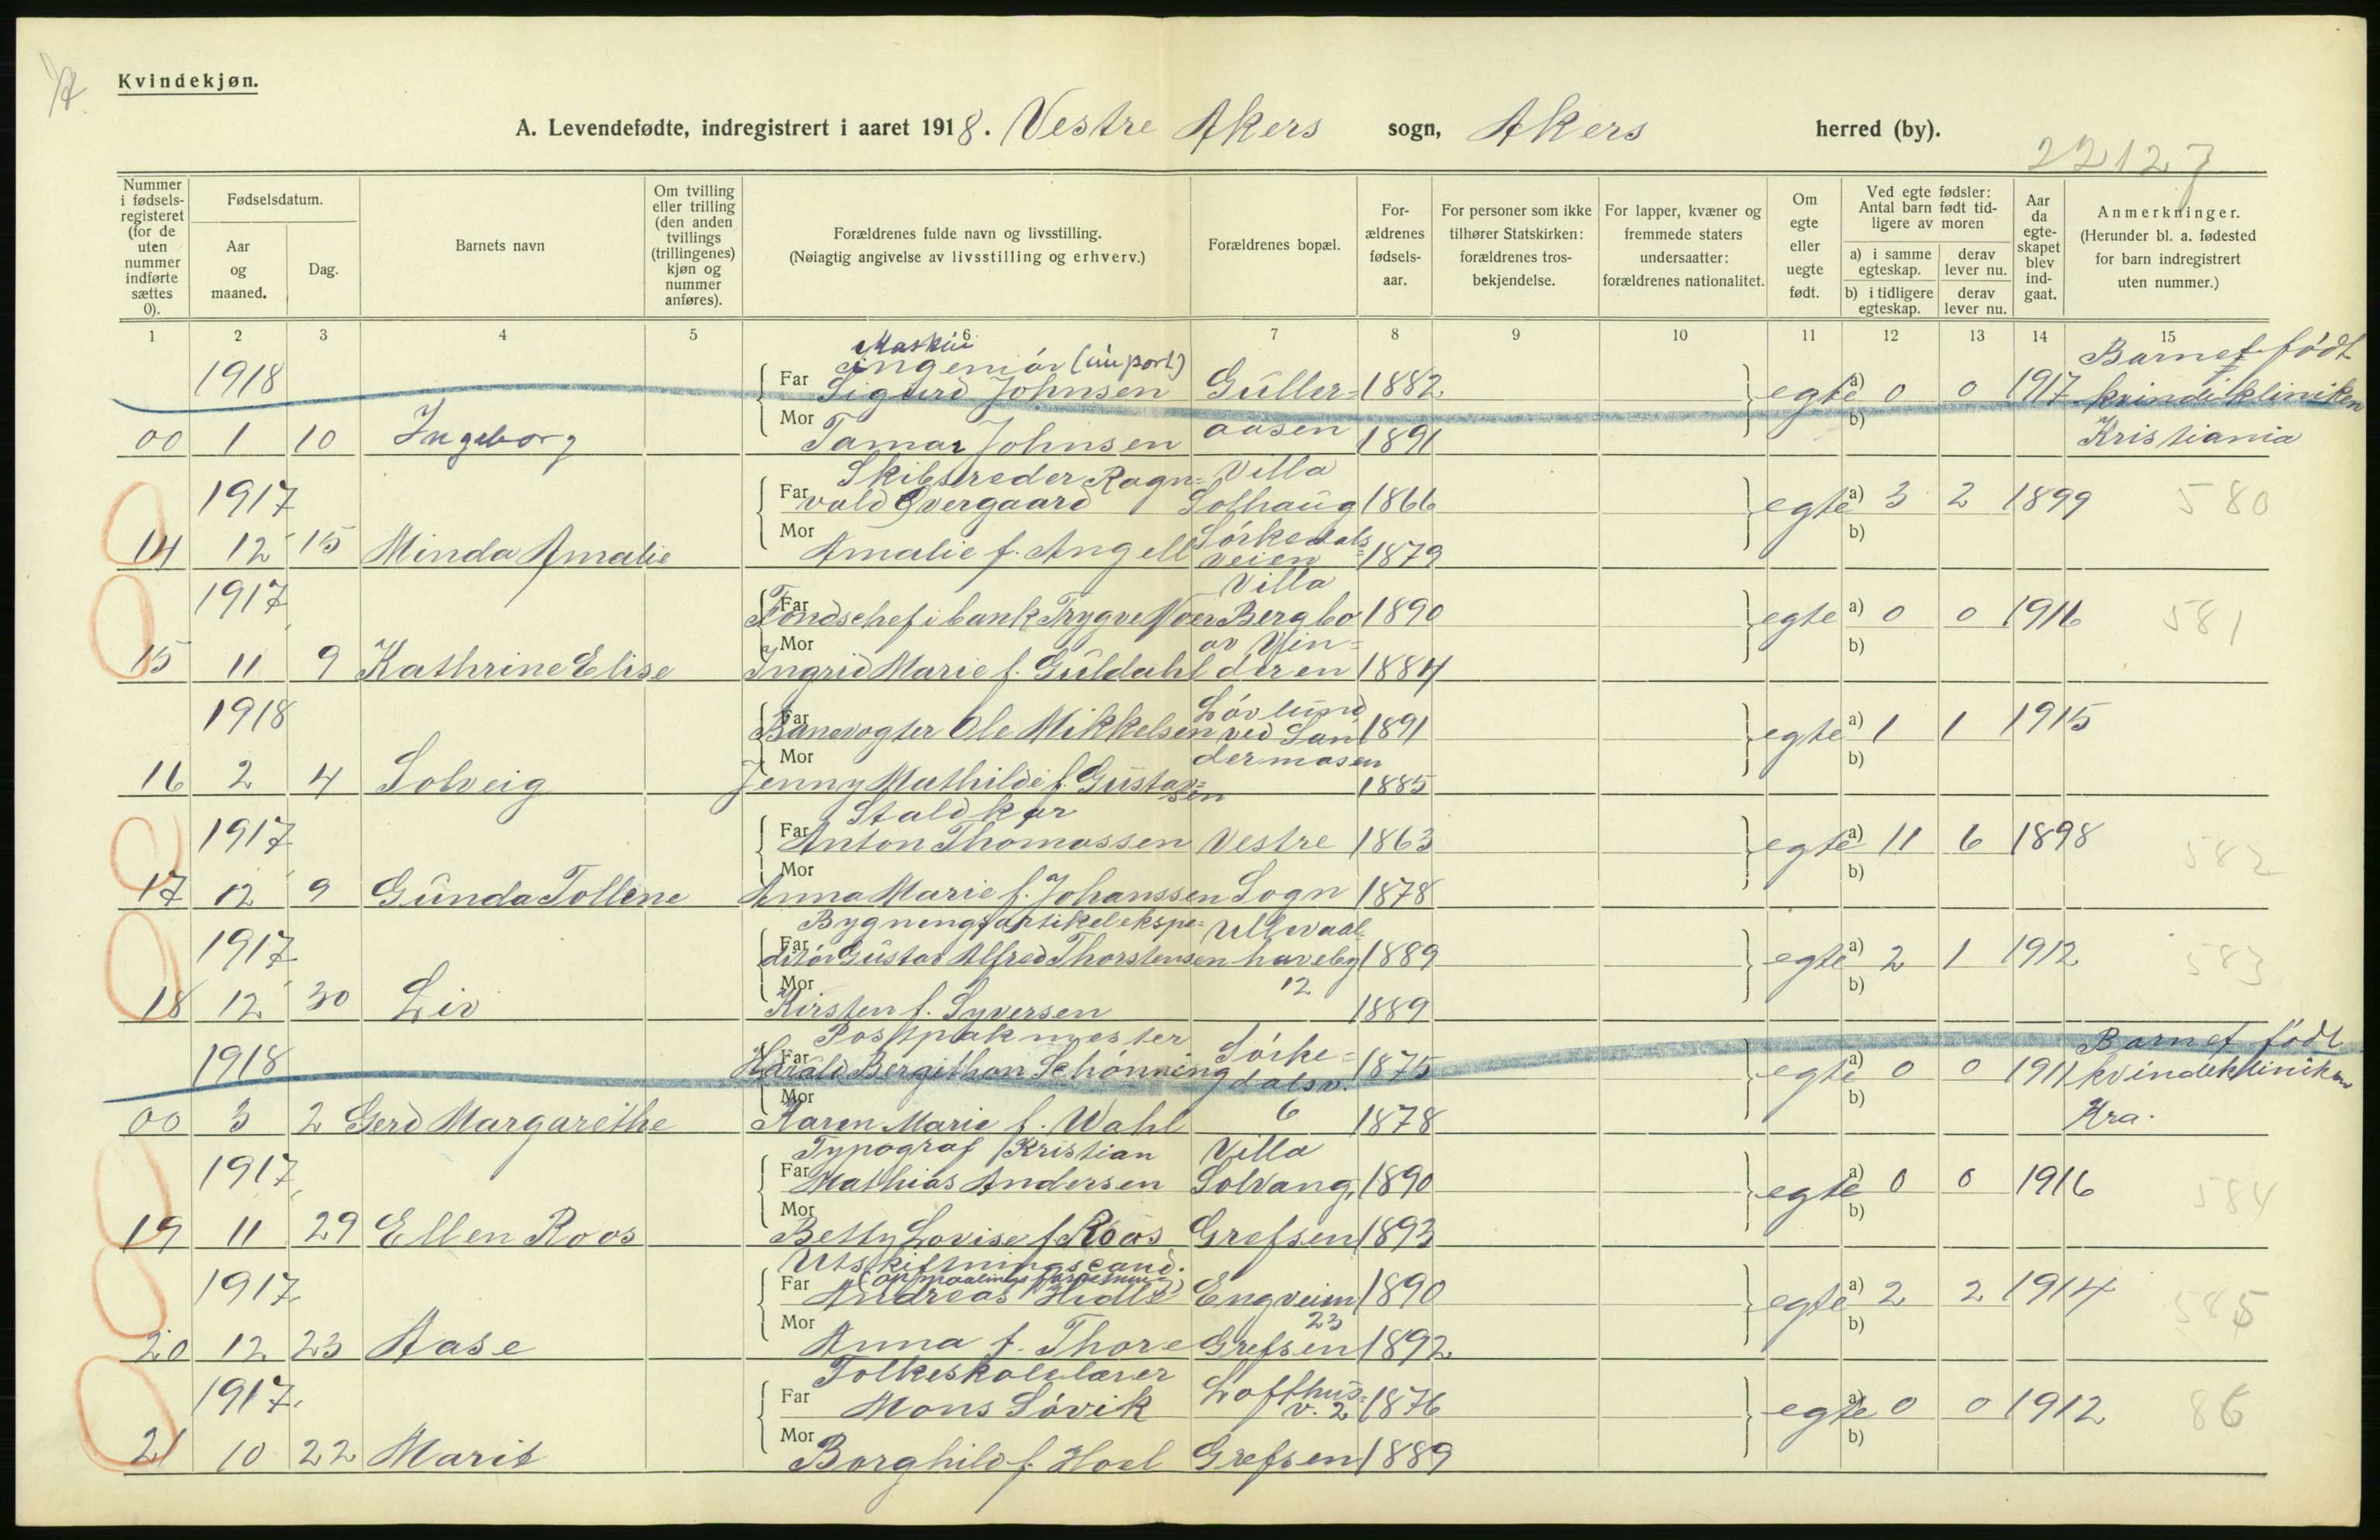 Kvindekjøn.
A. Levendefødte, indregistrert i aaret 1918. Vestre Akers sogn, Akers herred (by).
22127
Nummer i fødselsregisteret (for de uten nummer indførte sættes 0).
Fødselsdatum.
Aar og maaned.
Dag.
Barnets navn
Om tvilling eller trilling (den anden tvillings (trillingenes) kjøn og nummer anføres).
Forældrenes fulde navn og livsstilling.
(Nøiagtig angivelse av livsstilling og erhverv.)
Forældrenes bopæl.
Forældrenes fødselsaar.
For personer som ikke tilhører Statskirken: forældrenes trosbekjendelse.
For lapper, kvæner og fremmede staters undersaatter: forældrenes nationalitet.
Om egte eller uegte født.
Ved egte fødsler: Antal barn født tidligere av moren
a) i samme egteskap. derav lever nu.
b) i tidligere egteskap. derav lever nu.
Aar da egteskapet blev indgaat.
Anmerkninger.
(Herunder bl. a. fødested for barn indregistrert uten nummer.)
1 2 3 4 5 6 7 8 9 10 11 12 13 14 15
Maskin
ingeniör (import) Barnet født
1918 Far Sigurd Johnsen Guller= 1882 egte a) 0 0 1917 kvindekliniken
00 1 10 Ingeborg Mor Tamar Johnsen aasen 1891 b) Kristiania
Skibsreder Ragn= Villa
1917 Far vald Overgaard Solhaug 1866 egte a) 3 2 1899 580
14 12 15 Minda Amalie Mor Amalie f. Angell Sörkedals= veien 1879 b)
Villa
1917 Far Fondschef i bank Trygve Noer Bergbo 1890 egte a) 0 0 1916 581
15 11 9 Kathrine Elise Mor Ingrid Marie f. Guldahl av Vin= deren 1884 b)
1918 Far Banevogter Ole Mikkelsen Lövlund ved San 1891 egte a) 1 1 1915
16 2 4 Solveig Mor Jenny Mathilde f. Gustav= sen dermosen 1885 b)
Staldkar
1917 Far Anton Thomassen Vestre 1863 egte a) 11 6 1898 582
17 12 9 Gunda Tollene Mor Anna Marie f. Johanssen Sogn 1878 b)
Bygningsartikelekspe= Ullevaal
1917 Far ditör Gustav Alfred Thorstensen haveby 1889 egte a) 2 1 1912 583
18 12 30 Liv Mor Kirsten f. Syversen 12 1889 b)
Postpakmester Barnet født
1918 Far Harald Bergithon Schönning Sörke= dalsv. 1875 egte a) 0 0 1911 kvindekliniken
00 3 2 Gerd Margarethe Mor Karen Marie f. Wahl 6 1878 b) Kra.
Typograf Kristian Villa
1917 Far Mathias Andersen Solvang, 1890 egte a) 0 0 1916 584
19 11 29 Ellen Roos Mor Betty Lovise f. Roos Grefsen 1893 b)
Utskiftningscand.
1917 Far Andreas Engveien 1890 egte a) 2 2 1914 585
20 12 23 Aase Mor Anna f. Thore 23 Grefsen 1892 b)
Folkeskolelærer
1917. Far Mons Sövik Lofthus= v. 2 1876 egte a) 0 0 1912 86
21 10 22 Marit Mor Borghild f. Hoel Grefsen 1889 b)